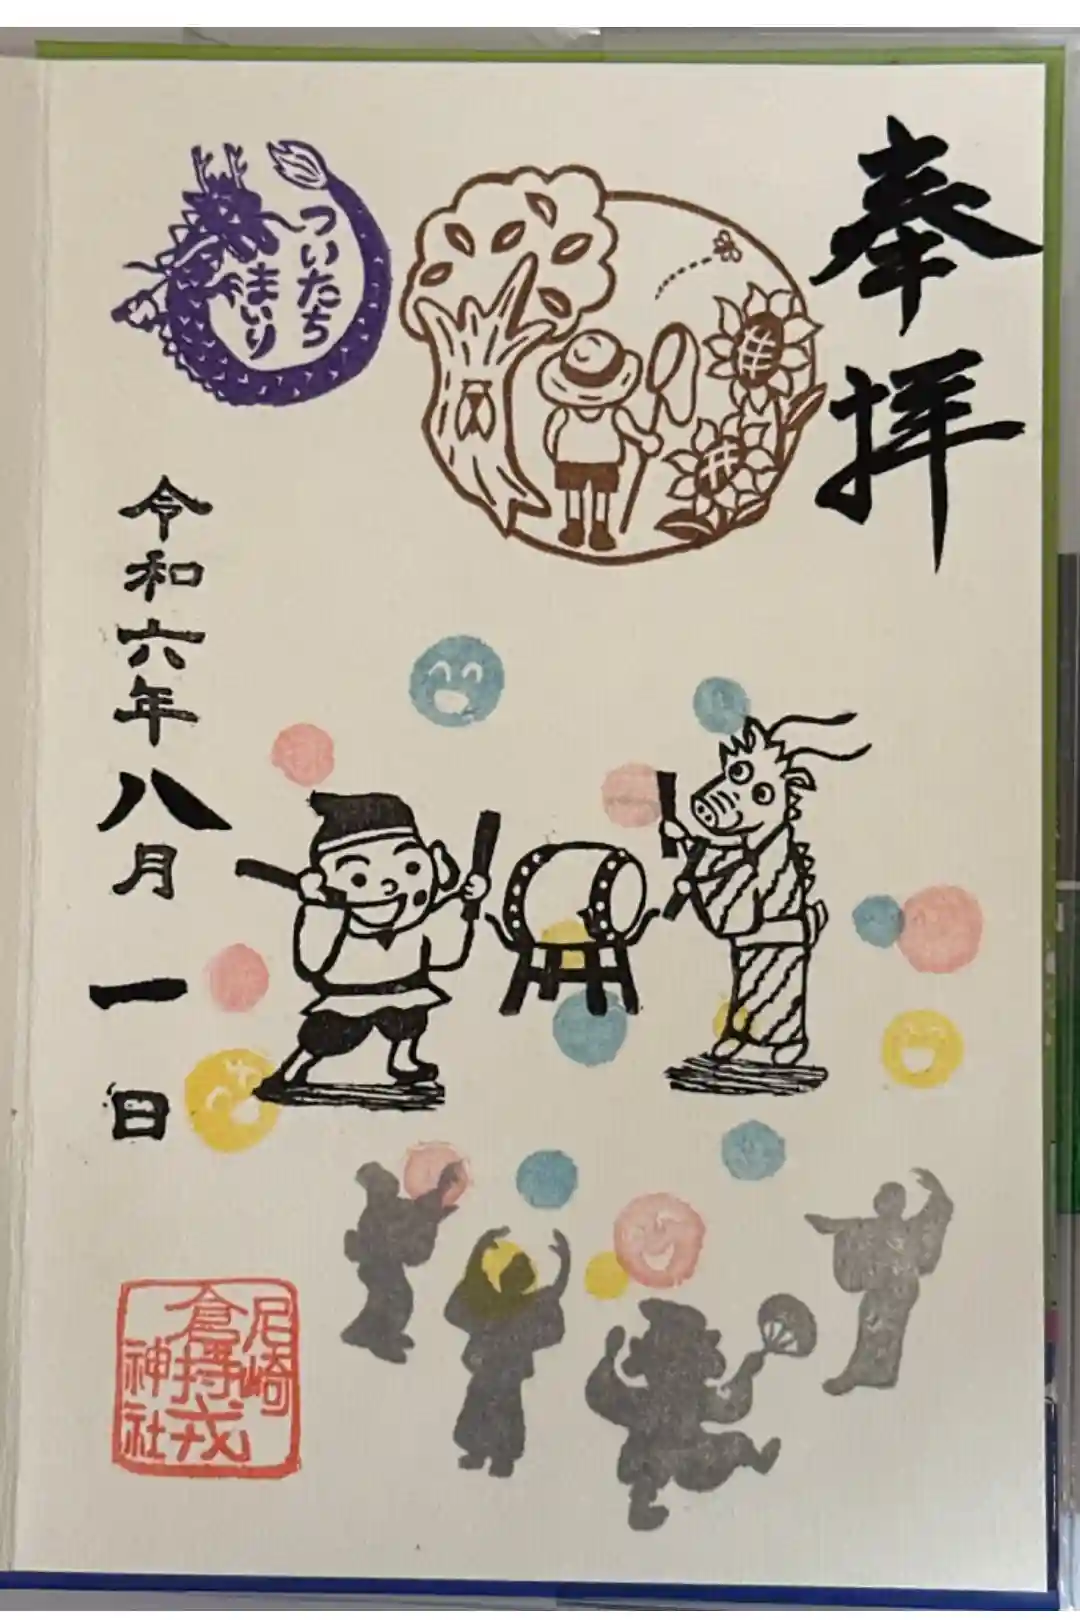 奉拝
ついたち
まいり
令和六年八月一日
尼崎
倉持戎
神社